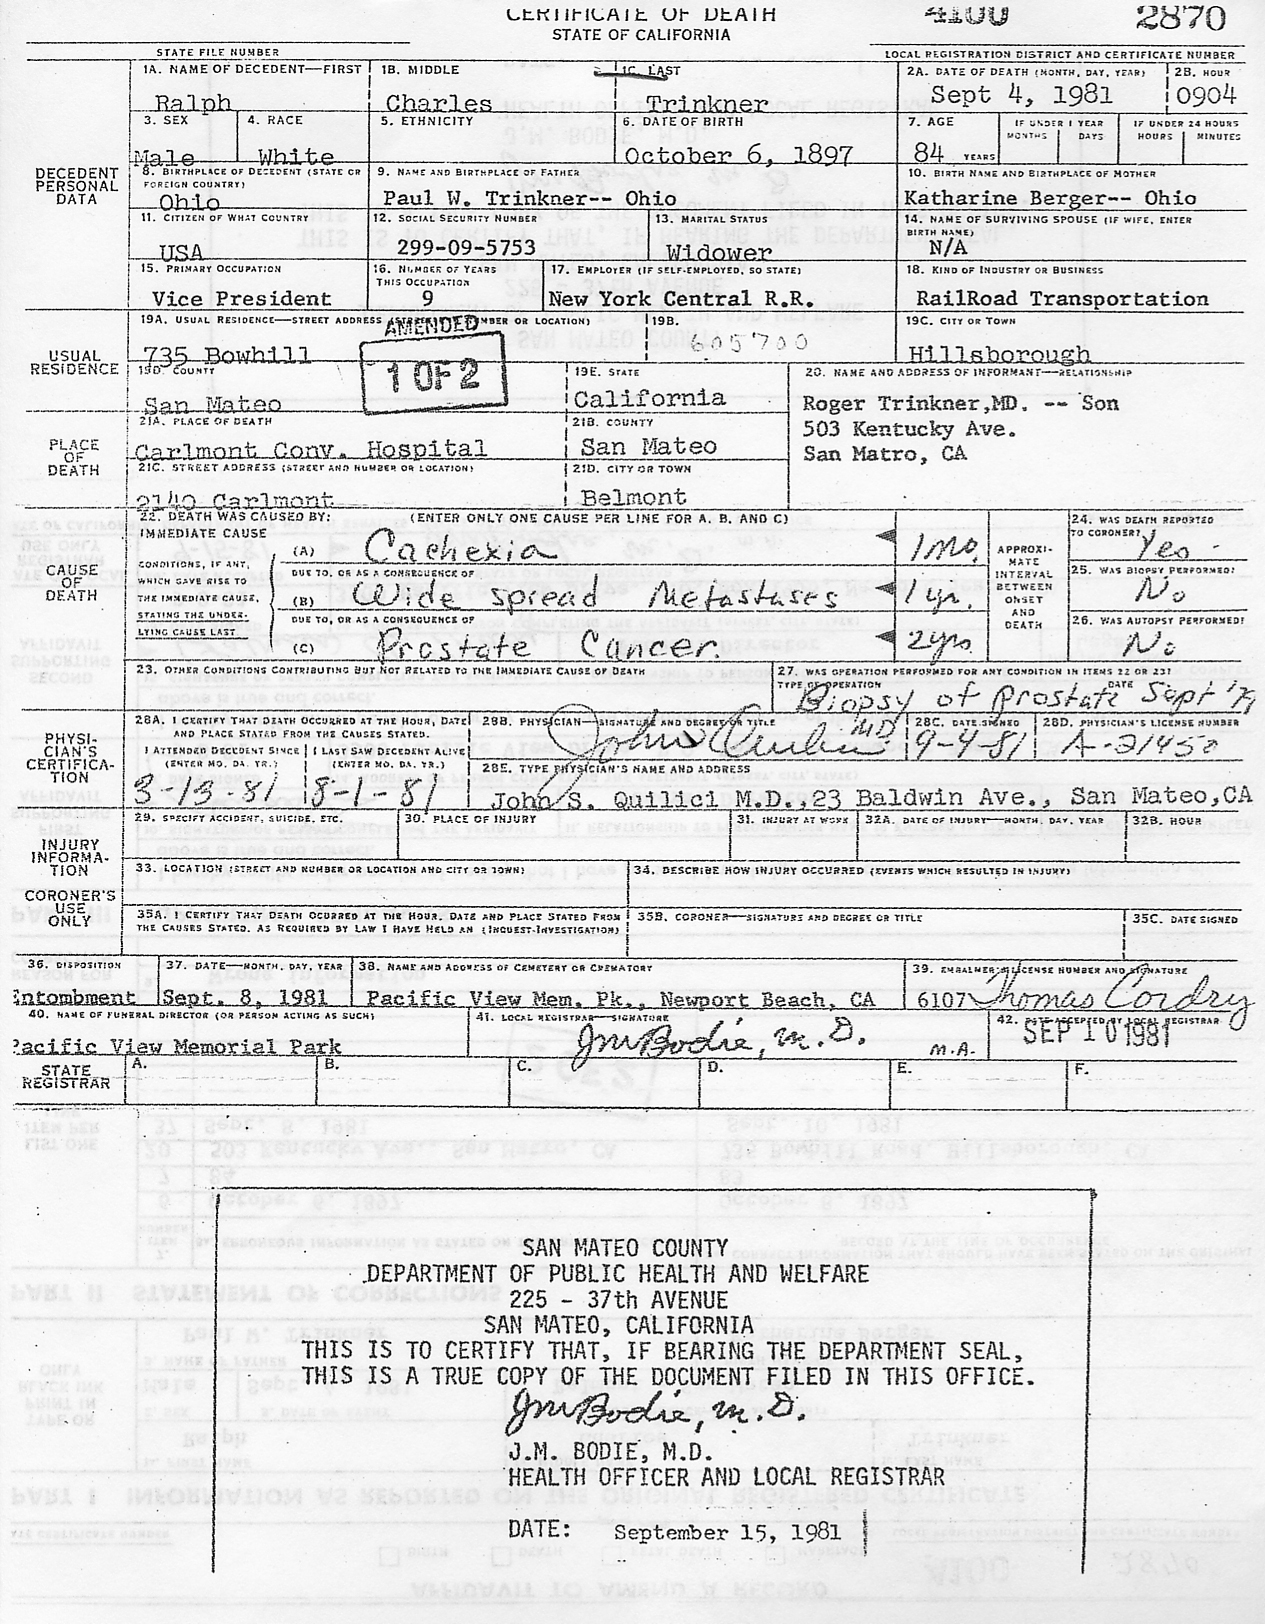 CERTIFICATE OF DEATH
STATE OF CALIFORNIA
4100 2870
STATE FILE NUMBER
LOCAL REGISTRATION DISTRICT AND CERTIFICATE NUMBER
DECEDENT PERSONAL DATA
1A. NAME OF DECEDENT—FIRST
Ralph
1B. MIDDLE
Charles
1C. LAST
Trinkner
2A. DATE OF DEATH (MONTH, DAY, YEAR)
Sept 4, 1981
2B. HOUR
0904
3. SEX
Male
4. RACE
White
5. ETHNICITY
6. DATE OF BIRTH
October 6, 1897
7. AGE
84 YEARS
IF UNDER 1 YEAR
MONTHS DAYS
IF UNDER 24 HOURS
HOURS MINUTES
8. BIRTHPLACE OF DECEDENT (STATE OR FOREIGN COUNTRY)
Ohio
9. NAME AND BIRTHPLACE OF FATHER
Paul W. Trinkner-- Ohio
10. BIRTH NAME AND BIRTHPLACE OF MOTHER
Katharine Berger-- Ohio
11. CITIZEN OF WHAT COUNTRY
USA
12. SOCIAL SECURITY NUMBER
299-09-5753
13. MARITAL STATUS
Widower
14. NAME OF SURVIVING SPOUSE (IF WIFE, ENTER BIRTH NAME)
N/A
15. PRIMARY OCCUPATION
Vice President
16. NUMBER OF YEARS THIS OCCUPATION
9
17. EMPLOYER (IF SELF-EMPLOYED, SO STATE)
New York Central R.R.
18. KIND OF INDUSTRY OR BUSINESS
RailRoad Transportation
USUAL RESIDENCE
19A. USUAL RESIDENCE—STREET ADDRESS (STREET AND NUMBER OR LOCATION)
735 Bowhill
AMENDED
1 OF 2
19B.
605700
19C. CITY OR TOWN
Hillsborough
19D. COUNTY
San Mateo
19E. STATE
California
20. NAME AND ADDRESS OF INFORMANT—RELATIONSHIP
Roger Trinkner,MD. -- Son
503 Kentucky Ave.
San Matro, CA
PLACE OF DEATH
21A. PLACE OF DEATH
Carlmont Conv. Hospital
21B. COUNTY
San Mateo
21C. STREET ADDRESS (STREET AND NUMBER OR LOCATION)
2140 Carlmont
21D. CITY OR TOWN
Belmont
CAUSE OF DEATH
22. DEATH WAS CAUSED BY: (ENTER ONLY ONE CAUSE PER LINE FOR A. B. AND C)
IMMEDIATE CAUSE
CONDITIONS, IF ANY, WHICH GAVE RISE TO THE IMMEDIATE CAUSE, STATING THE UNDERLYING CAUSE LAST
(A) Cachexia 1 mo.
DUE TO, OR AS A CONSEQUENCE OF
(B) Wide spread Metastases 1 yr.
DUE TO, OR AS A CONSEQUENCE OF
(C) Prostate Cancer. 2 yrs.
APPROXIMATE INTERVAL BETWEEN ONSET AND DEATH
24. WAS DEATH REPORTED TO CORONER?
Yes -
25. WAS BIOPSY PERFORMED?
No
26. WAS AUTOPSY PERFORMED?
No
23. OTHER CONDITIONS CONTRIBUTING BUT NOT RELATED TO THE IMMEDIATE CAUSE OF DEATH
27. WAS OPERATION PERFORMED FOR ANY CONDITION IN ITEMS 22 OR 23?
TYPE OF OPERATION DATE
Biopsy of Prostate Sept '79
PHYSICIAN'S CERTIFICATION
28A. I CERTIFY THAT DEATH OCCURRED AT THE HOUR, DATE AND PLACE STATED FROM THE CAUSES STATED.
I ATTENDED DECEDENT SINCE (ENTER MO. DA. YR.)
3-13-81
I LAST SAW DECEDENT ALIVE (ENTER MO. DA. YR.)
8-1-81
28B. PHYSICIAN—SIGNATURE AND DEGREE OR TITLE
John S Quilici MD
28C. DATE SIGNED
9-4-81
28D. PHYSICIAN'S LICENSE NUMBER
A-21450
28E. TYPE PHYSICIAN'S NAME AND ADDRESS
John S. Quilici M.D.,23 Baldwin Ave., San Mateo,CA
INJURY INFORMATION
CORONER'S USE ONLY
29. SPECIFY ACCIDENT, SUICIDE, ETC.
30. PLACE OF INJURY
31. INJURY AT WORK
32A. DATE OF INJURY—MONTH, DAY, YEAR
32B. HOUR
33. LOCATION (STREET AND NUMBER OR LOCATION AND CITY OR TOWN)
34. DESCRIBE HOW INJURY OCCURRED (EVENTS WHICH RESULTED IN INJURY)
35A. I CERTIFY THAT DEATH OCURRED AT THE HOUR, DATE AND PLACE STATED FROM THE CAUSES STATED. AS REQUIRED BY LAW I HAVE HELD AN (INQUEST-INVESTIGATION)
35B. CORONER—SIGNATURE AND DEGREE OR TITLE
35C. DATE SIGNED
36. DISPOSITION
Entombment
37. DATE—MONTH, DAY, YEAR
Sept. 8, 1981
38. NAME AND ADDRESS OF CEMETERY OR CREMATORY
Pacific View Mem. Pk., Newport Beach, CA
39. EMBALMER'S LICENSE NUMBER AND SIGNATURE
6107 Thomas Cordry
40. NAME OF FUNERAL DIRECTOR (OR PERSON ACTING AS SUCH)
Pacific View Memorial Park
41. LOCAL REGISTRAR—SIGNATURE
JM Bodie, M.D. M.A.
42. DATE ACCEPTED BY LOCAL REGISTRAR
SEP 10 1981
STATE REGISTRAR
A. B. C. D. E. F.
SAN MATEO COUNTY
DEPARTMENT OF PUBLIC HEALTH AND WELFARE
225 - 37th AVENUE
SAN MATEO, CALIFORNIA
THIS IS TO CERTIFY THAT, IF BEARING THE DEPARTMENT SEAL,
THIS IS A TRUE COPY OF THE DOCUMENT FILED IN THIS OFFICE.
JM Bodie, M.D.
J.M. BODIE, M.D.
HEALTH OFFICER AND LOCAL REGISTRAR
DATE: September 15, 1981